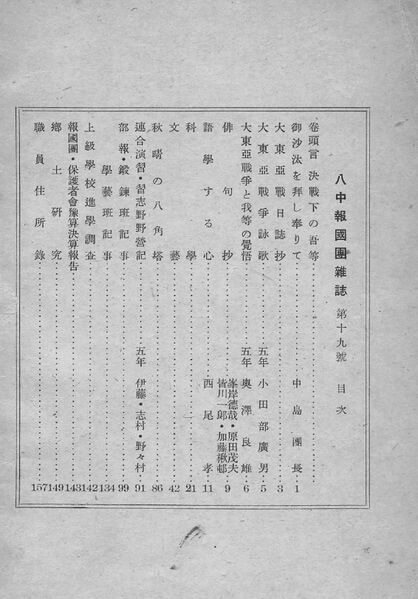 八中報國團雜誌 第十九號 目次
卷頭言 決戰下の吾等
御沙汰を拜し奉りて…………中島團長…1
大東亞戰日誌抄…………3
大東亞戰爭詠歌…………五年 小田部廣男…5
大東亞戰爭と我等の覺悟…………五年 奧澤良雄…6
俳句抄…………峯岸德哉・原田茂夫 皆川一郞・加藤楸邨…9
語學する心…………西尾孝…11
科學…………21
文藝…………42
秋晴の八角塔…………86
連合演習・習志野野營記…………五年 伊藤・志村・野々村…91
部報・鍛鍊班記事…………99
學藝班記事…………134
上級學校進學調査…………142
報國團・保護者會豫算決算報告…………143
鄕土硏究…………149
職員住所錄…………157